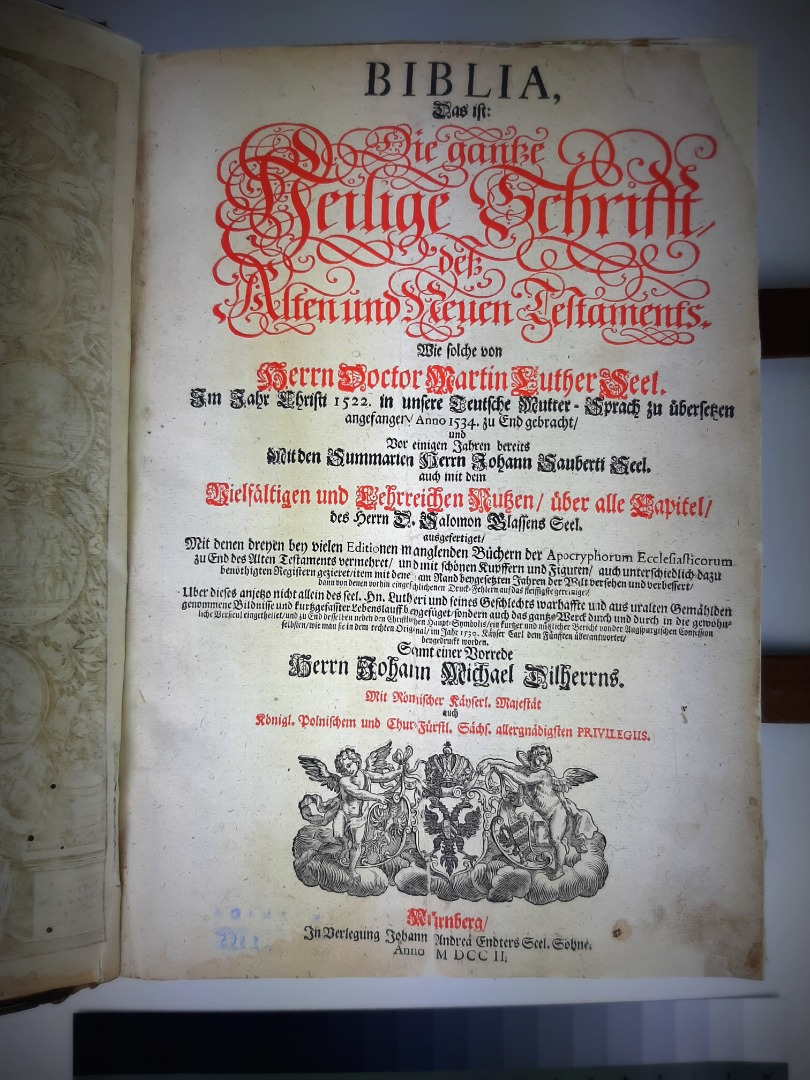 BIBLIA,
Das ist:
Die gantze
Heilige Schrifft/
deß
Alten und Neuen Testaments.
Wie solche von
Herrn Doctor Martin Luther Seel.
Im Jahr Christi 1522. in unsere Teutsche Mutter-Sprach zu übersetzen
angefangen/ Anno 1534. zu End gebracht/
und
Vor einigen Jahren bereits
Mit den Summarien Herrn Johann Sauberti Seel.
auch mit dem
Vielfältigen und Lehrreichen Nutzen/ über alle Capitel/
des Herrn D. Salomon Glassens Seel.
ausgefertiget/
Mit denen dreyen bey vielen Editionen manglenden Büchern der Apocryphorum Ecclesiasticorum
zu End des Alten Testaments vermehret/ und mit schönen Kupffern und Figuren/ auch unterschiedlich dazu
benöthigten Registern gezieret/ item mit denen am Rand beygesetzten Jahren der Welt versehen und verbessert/
dann von denen vorhin eingeschlichenen Druck-Fehlern auf das fleissigste gereiniget/
Uber dieses anjetzo nicht allein des seel. Hn. Lutheri und seines Geschlechts warhaffte und aus uralten Gemählden
genommene Bildnisse und kurtzgefaßter Lebenslauff beygefüget/ sondern auch das gantze Werck durch und durch in die gewöhn-
liche Versicul eingetheilet/ und zu End desselben neben den Christlichen Haupt-Symbolis/ ein kurtzer und nützlicher Bericht von der Augspurgischen Confession
selbsten/ wie man sie in dem rechten Original/ im Jahr 1530. Käyser Carl dem Fünfften überantwortet/
beygedruckt worden.
Samt einer Vorrede
Herrn Johann Michael Dilherrns.
Mit Römischer Käyserl. Majestät
auch
Königl. Polnischem und Chur-Fürstl. Sächs. allergnädigsten PRIVILEGIIS.
Nürnberg/
In Verlegung Johann Andreä Endters Seel. Söhne.
Anno M DCC II.